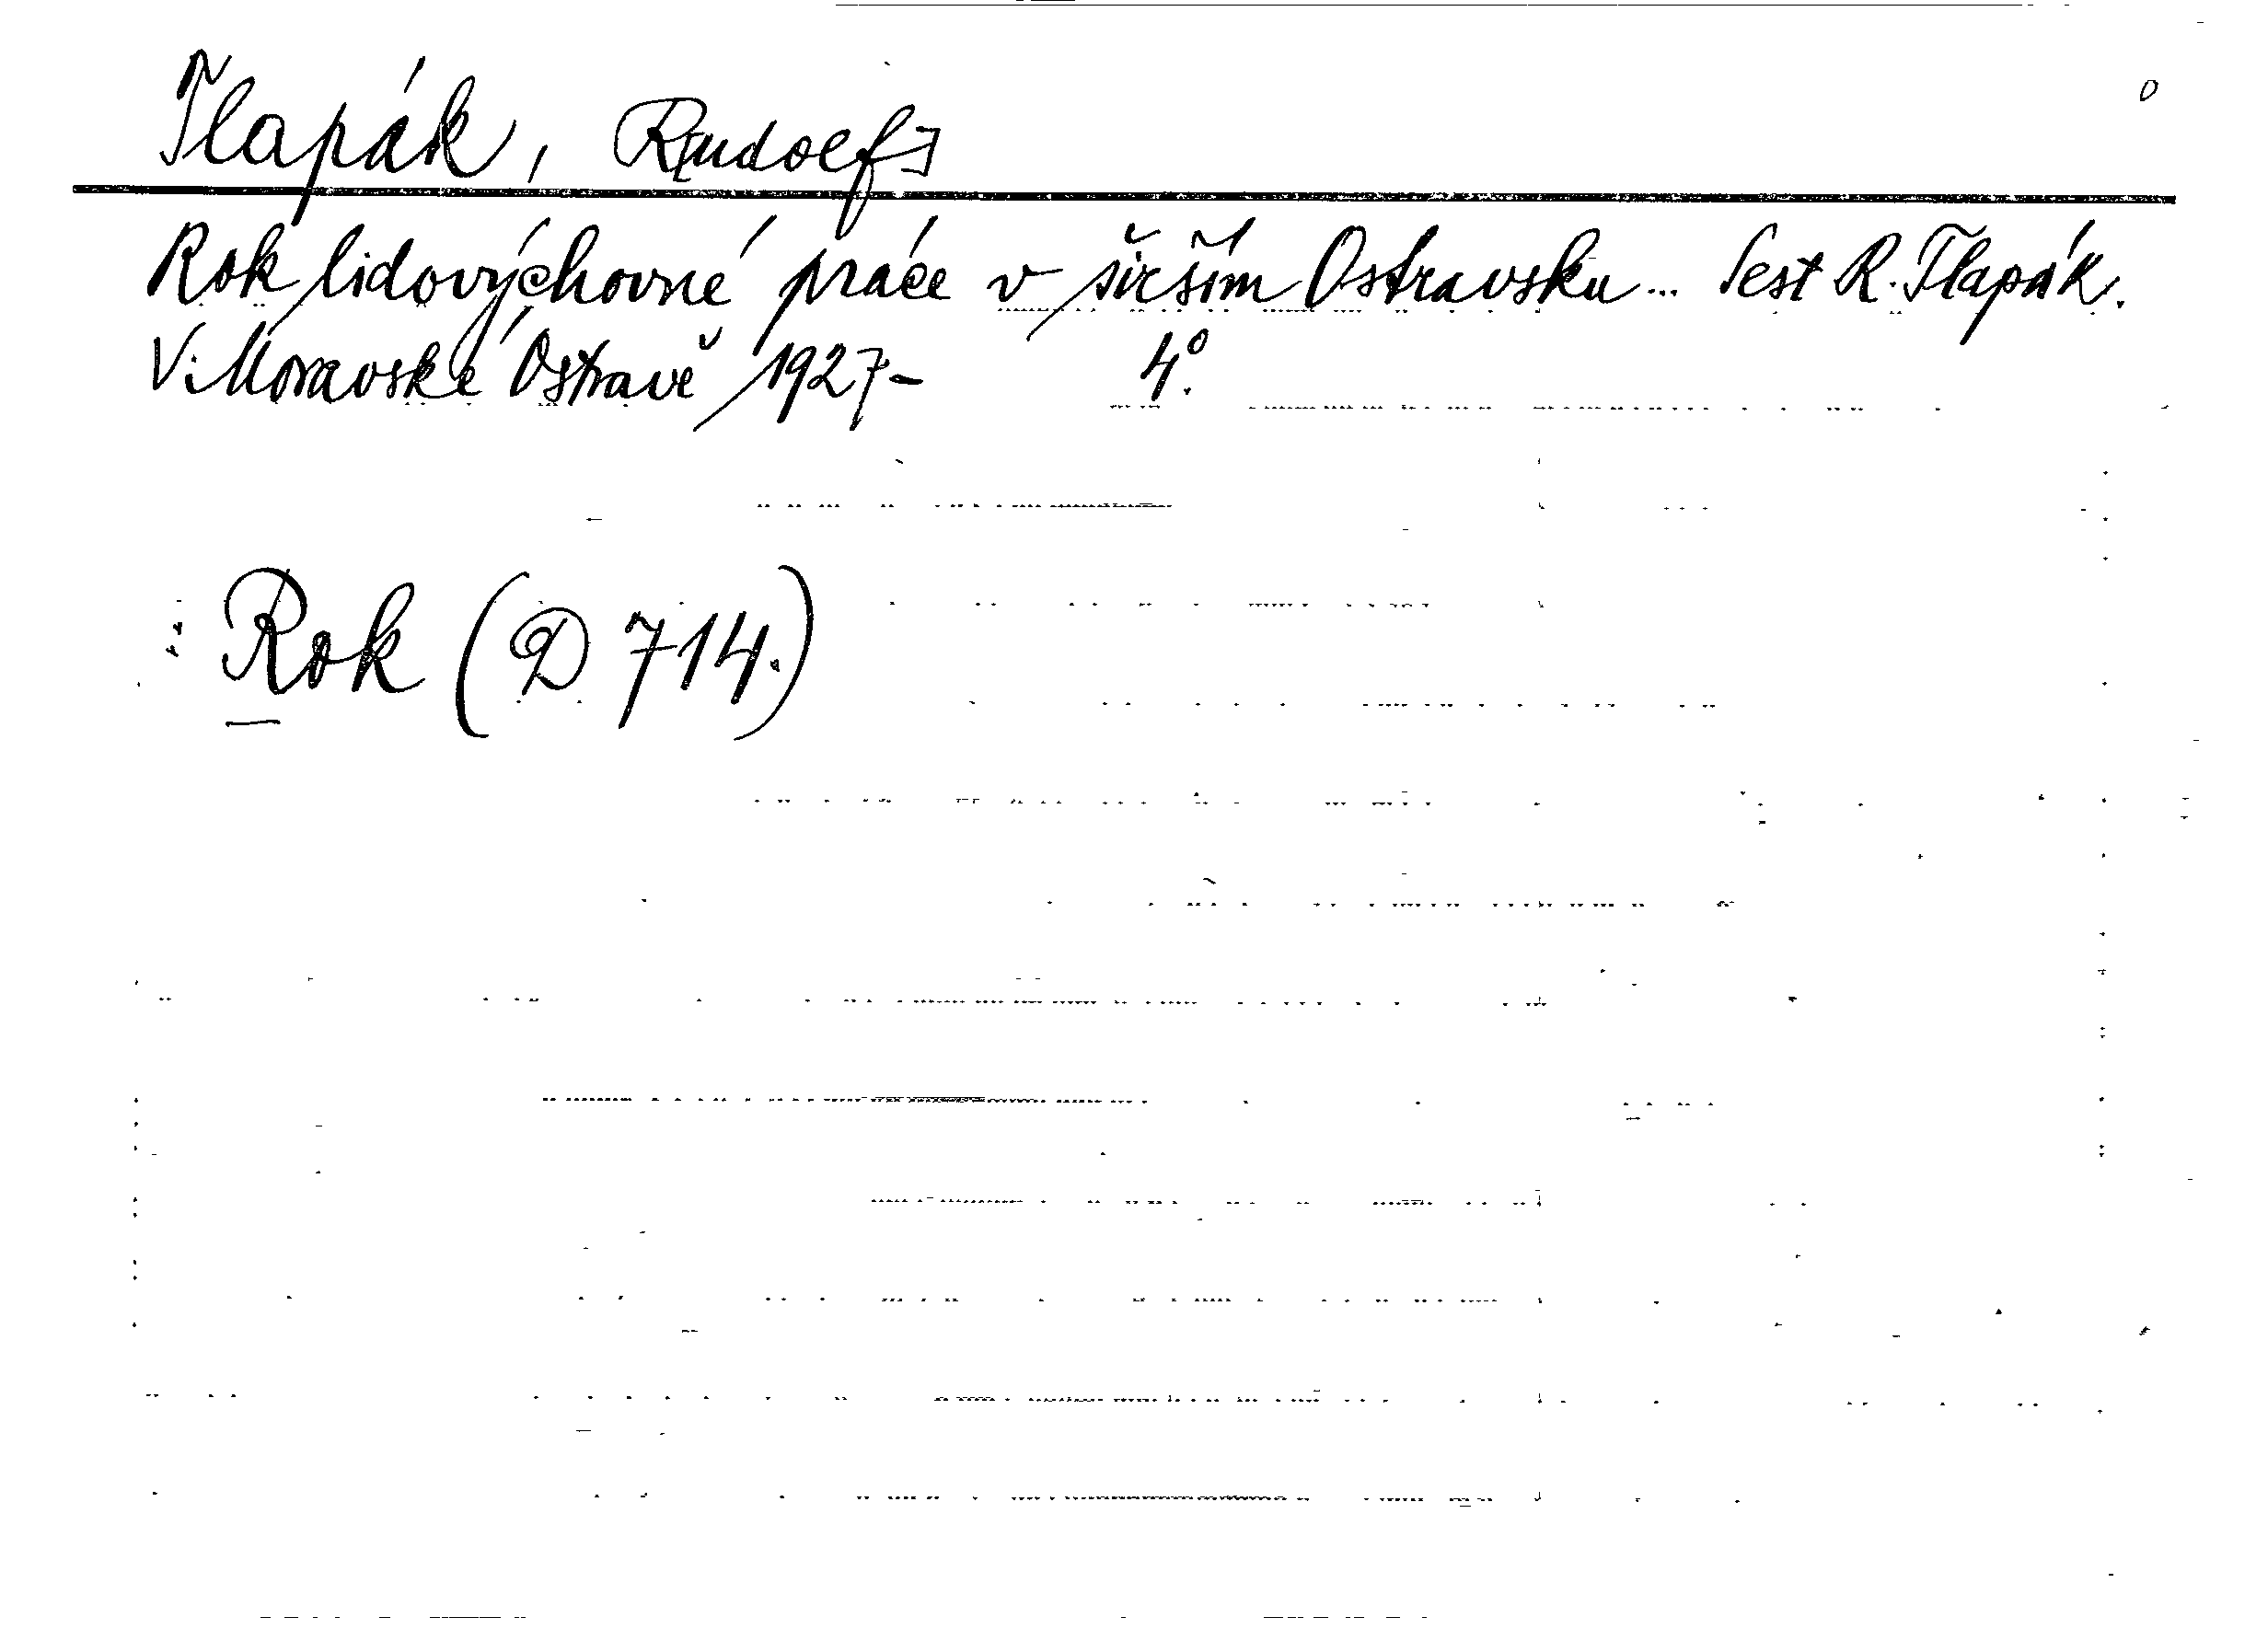 Tlapák, R[udolf]
Rok lidovýchovné práce v širším Ostravsku... Sest R. Tlapák.
V Moravské Ostravě 1927- 4°.
: Rok (D 714.)